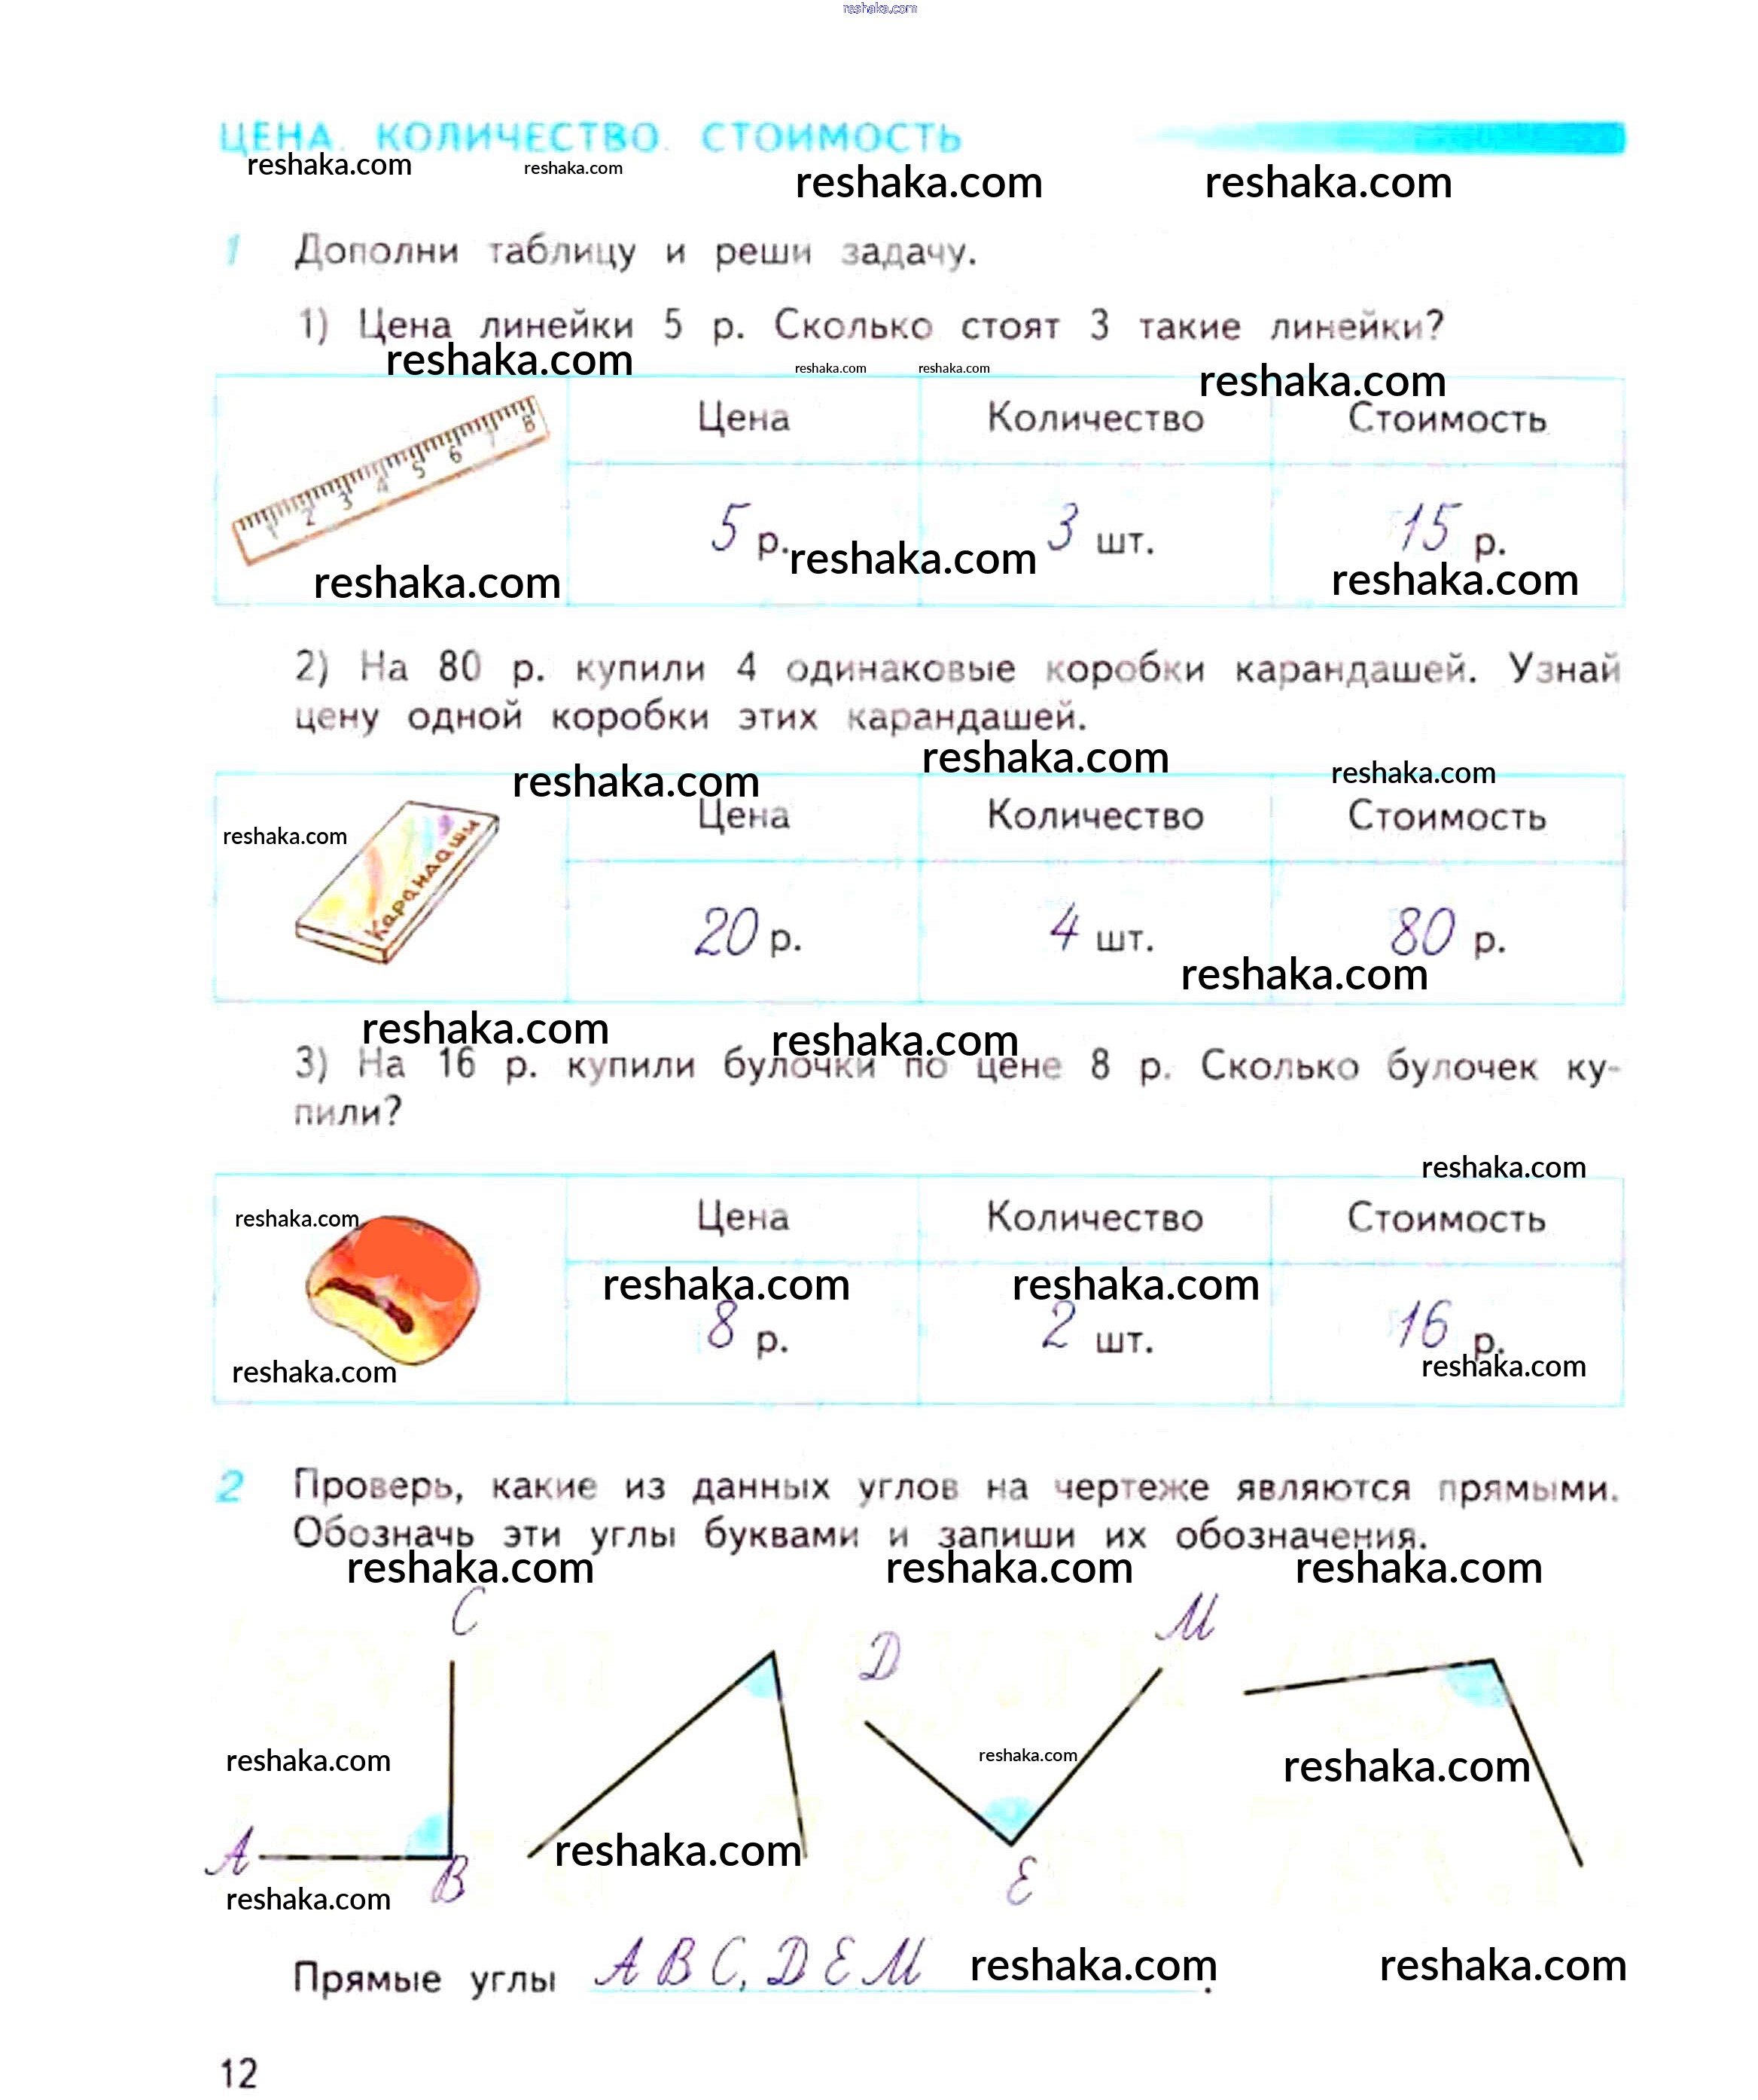 reshaka.com
ЦЕНА. КОЛИЧЕСТВО. СТОИМОСТЬ
reshaka.com reshaka.com reshaka.com reshaka.com
1 Дополни таблицу и реши задачу.
1) Цена линейки 5 р. Сколько стоят 3 такие линейки?
reshaka.com reshaka.com reshaka.com reshaka.com
Цена Количество Стоимость
1 2 3 4 5 6 7 8
5 р. 3 шт. 15 р.
reshaka.com reshaka.com reshaka.com
2) На 80 р. купили 4 одинаковые коробки карандашей. Узнай
цену одной коробки этих карандашей.
reshaka.com reshaka.com reshaka.com
Цена Количество Стоимость
reshaka.com
Карандаши
20 р. 4 шт. 80 р.
reshaka.com
reshaka.com reshaka.com
3) На 16 р. купили булочки по цене 8 р. Сколько булочек ку-
пили?
reshaka.com
reshaka.com Цена Количество Стоимость
reshaka.com reshaka.com
8 р. 2 шт. 16 р.
reshaka.com reshaka.com
2 Проверь, какие из данных углов на чертеже являются прямыми.
Обозначь эти углы буквами и запиши их обозначения.
reshaka.com reshaka.com reshaka.com
C D M
reshaka.com reshaka.com reshaka.com
A B reshaka.com E
reshaka.com
Прямые углы A B C, D E M . reshaka.com reshaka.com
12